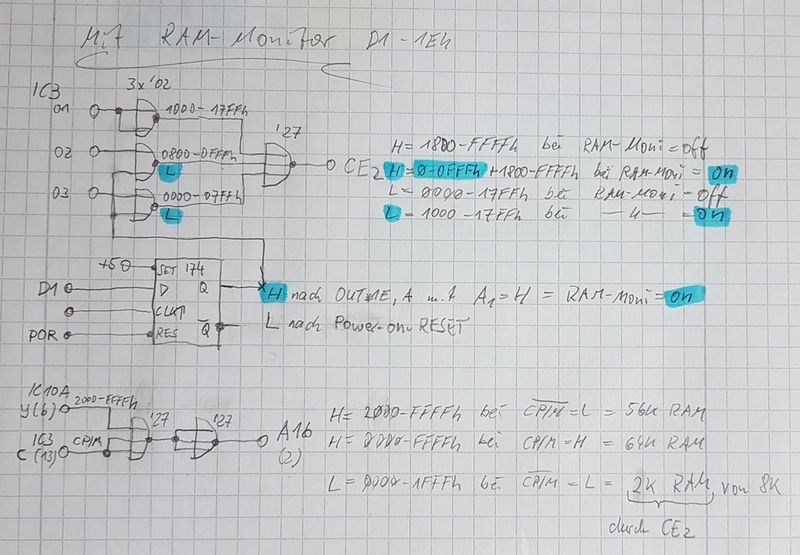 Mit RAM-Monitor D1-1Eh
IC3 3x '02
01 1000-17FFh '27
02 0800-0FFFh CE2
L
03 0000-07FFh
L
H=1800-FFFFh bei RAM-Moni=off
H=0-0FFFh+1800-FFFFh bei RAM-Moni=on
L=0000-17FFh bei RAM-Moni=off
L=1000-17FFh bei —〃— =on
+5 SET '74
D1 D Q
CLK
POR RES Q̅
H nach OUT 1E, A mit A1=H = RAM-Moni=on
L nach Power-on-RESET
IC10A 2000-FFFFh
Y(6) '27 '27
IC3 CP/M A16
C(13) (2)
H=2000-FFFFh bei C̅P̅/̅M̅=L=56K RAM
H=0000-FFFFh bei CP/M=H=64K RAM
L=0000-1FFFh bei C̅P̅/̅M̅=L=2K RAM von 8K
durch CE2